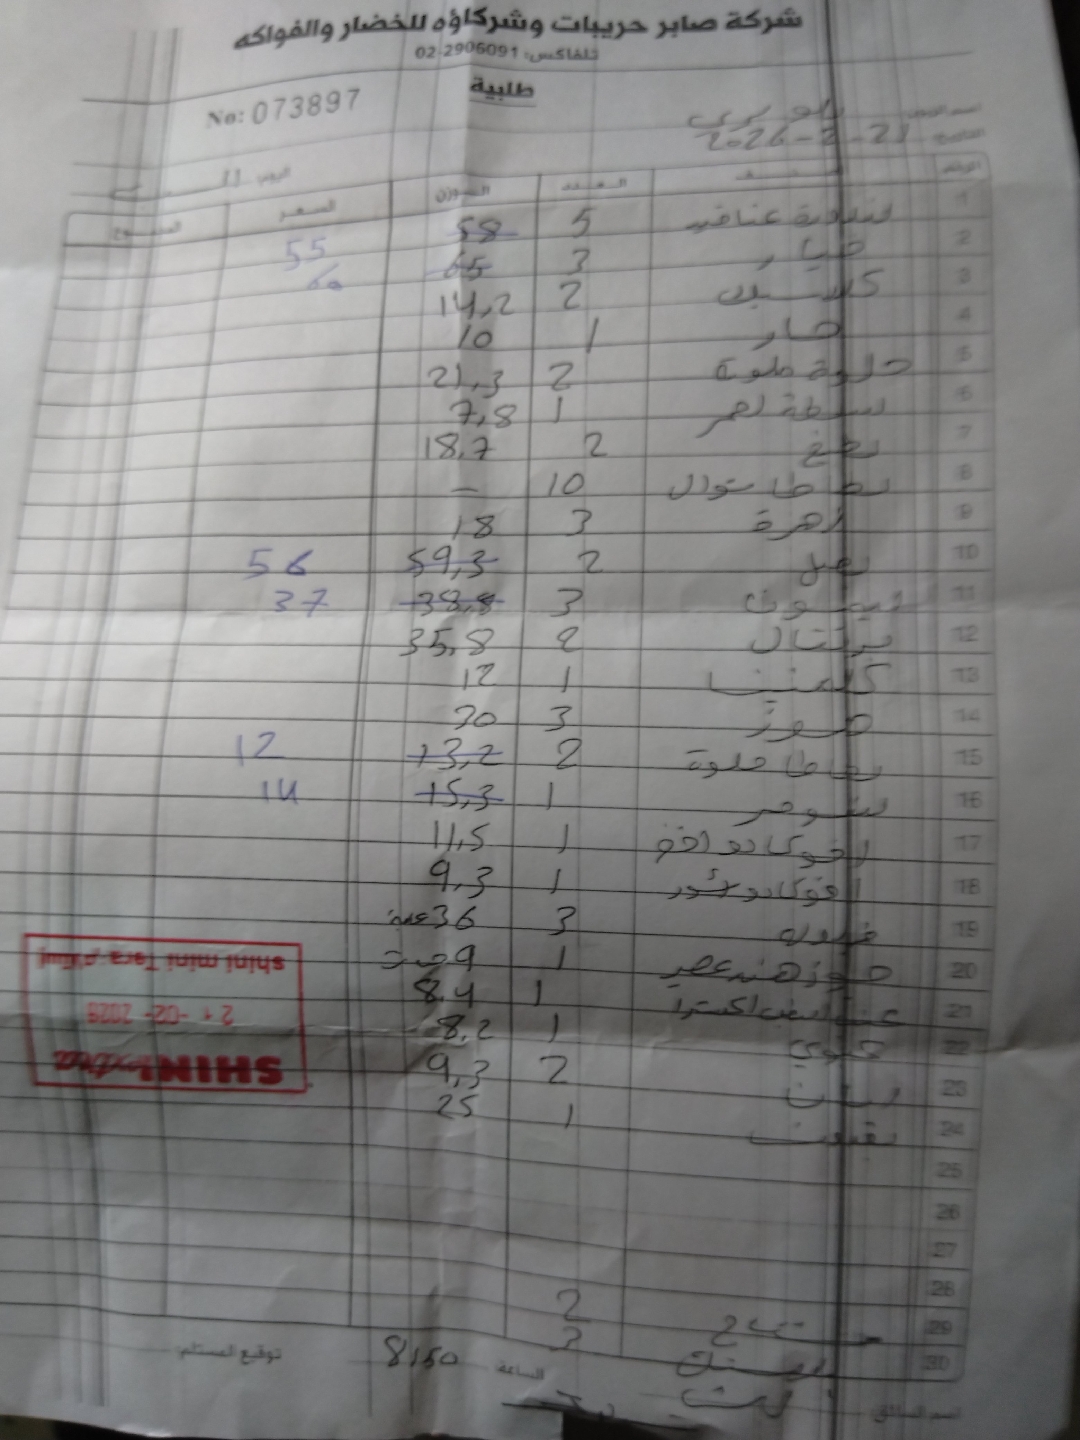 شركة صابر حريبات وشركاؤه للخضار والفواكه
تلفاكس: 02-2906091
طلبية
No: 073897
التاريخ 21-2-2026
اليوم
العدد الوزن السعر المجموع
1 بندورة عناقيد 5 58 55
2 خيار 3 65 60
3 2 14,2
4 حار 1 10
5 حلوة ملونة 2 21,3
6 1 7,8
7 2 18,7
8 بطاطا شوال 10 —
9 زهرة 3 18
10 بصل 2 59,3 56
11 ليمون 3 38,8 37
12 برتقال 2 35,8
13 كلمنتينا 1 12
14 موز 3 30
15 بطاطا حلوة 2 13,2 12
16 1 15,3 14
17 افوكادو 1 11,5
18 افوكادو 1 9,3
19 فراولة 3 36 علبة
20 جوز هند عصير 1 9 حبة
21 عنب ابيض اكسترا 1 8.4
22 كيوي 1 8.2
23 2 9,3
24 1 25
25
26
27
28
29 2
30 3
الساعة 8:50 توقيع المستلم:
اسم السائق
shini mini Tara إستلام
21-02-2026
SHINI